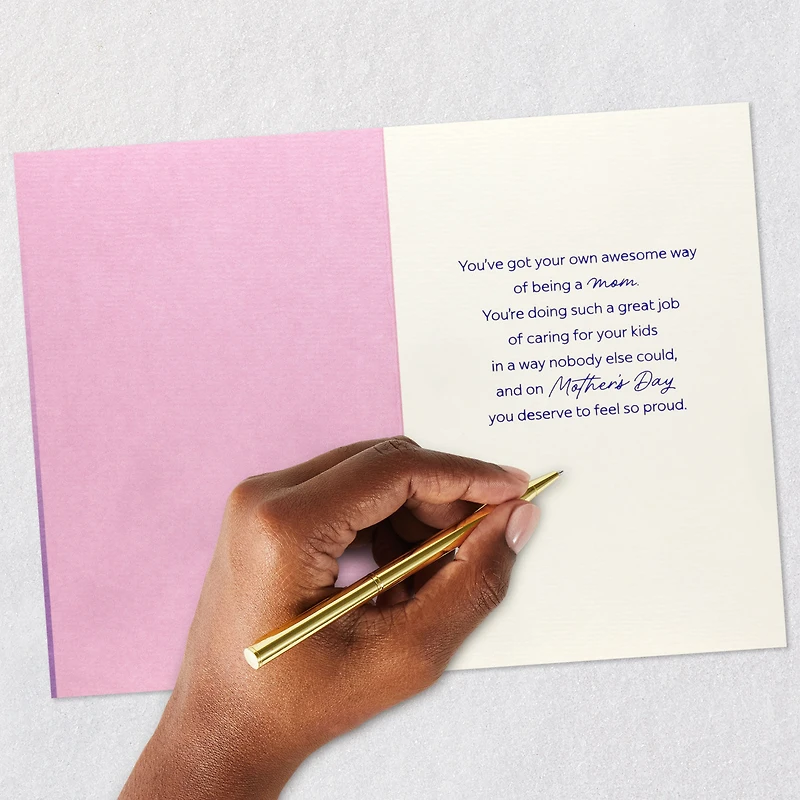 You've got your own awesome way
of being a mom.
You're doing such a great job
of caring for your kids
in a way nobody else could,
and on Mother's Day
you deserve to feel so proud.